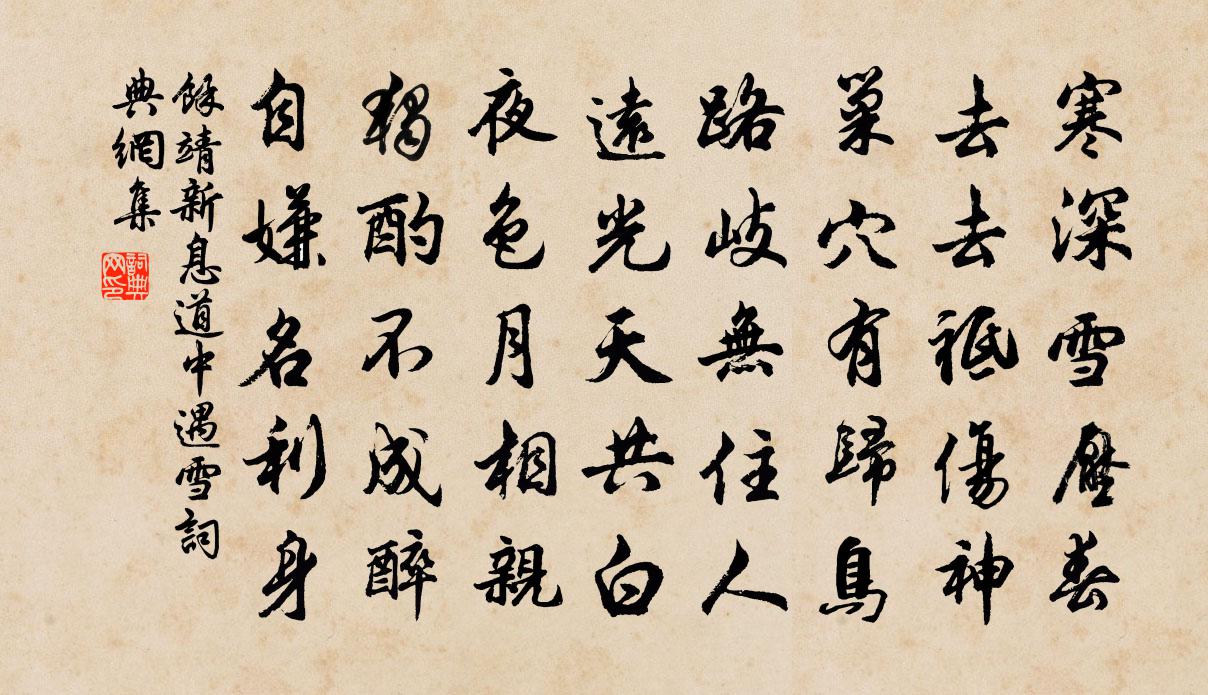 寒深雪壓春
去去祗傷神
巢穴有歸鳥
路岐無住人
遠光天共白
夜色月相親
獨酌不成醉
自嫌名利身
餘靖新息道中遇雪詞
典網集
詞典網印